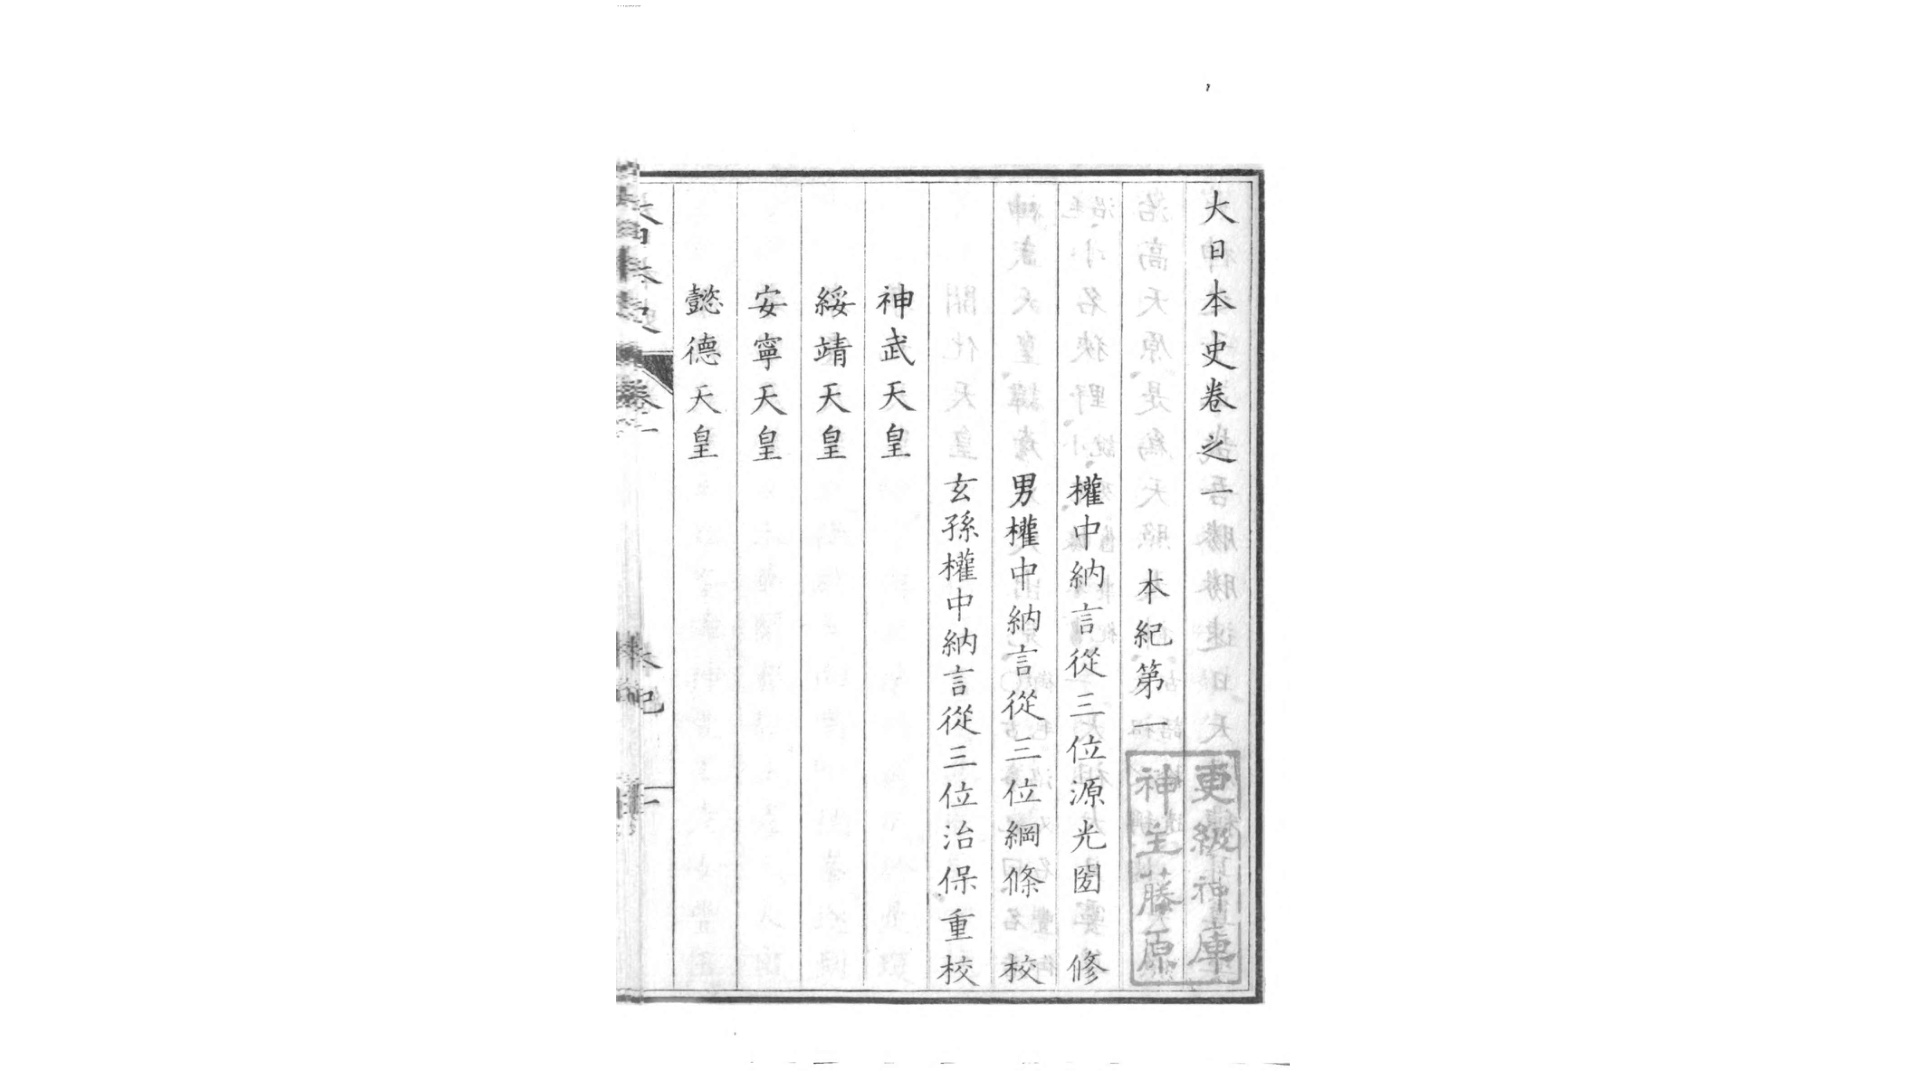 大日本史卷之一
本紀第一
權中納言從三位源光圀修
男權中納言從三位綱條校
玄孫權中納言從三位治保重校
神武天皇
綏靖天皇
安寧天皇
懿德天皇
神主藤原